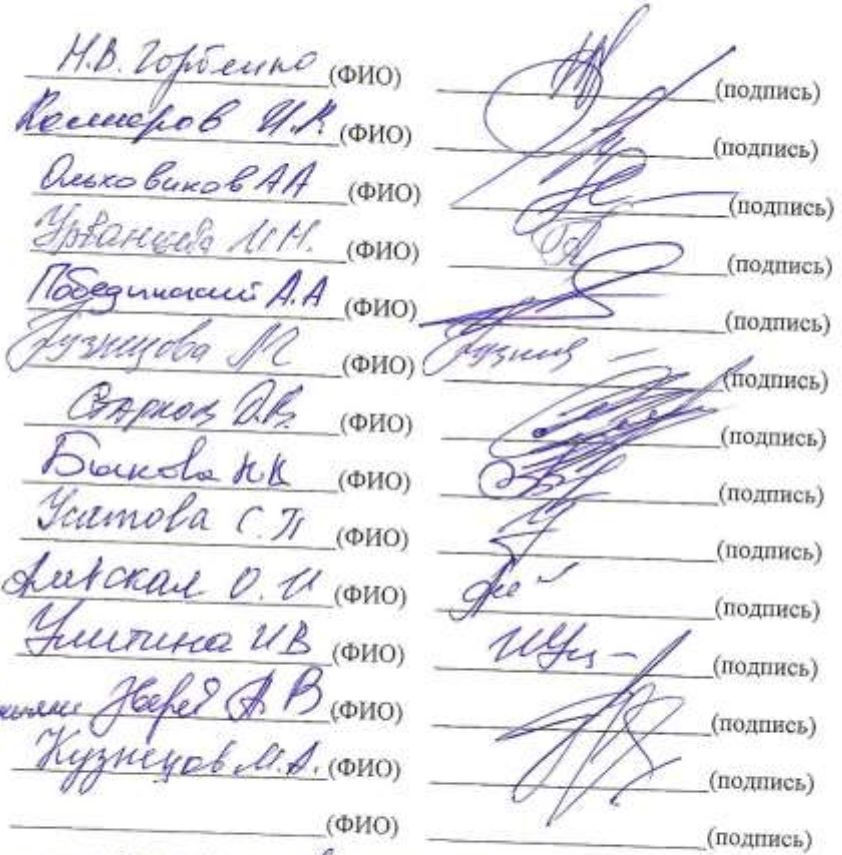 Н.В. Горбенко (ФИО) (подпись)
Комаров И.К (ФИО) (подпись)
Ольховиков АА (ФИО) (подпись)
Урванцева И.Н. (ФИО) (подпись)
Победимский А.А (ФИО) (подпись)
Кузнецова М (ФИО) (подпись)
Старков Д.В. (ФИО) (подпись)
Быкова Н.К (ФИО) (подпись)
Усатова С.П (ФИО) (подпись)
О.И (ФИО) (подпись)
Улитина И В (ФИО) (подпись)
А В (ФИО) (подпись)
Кузнецов М.А. (ФИО) (подпись)
(ФИО) (подпись)